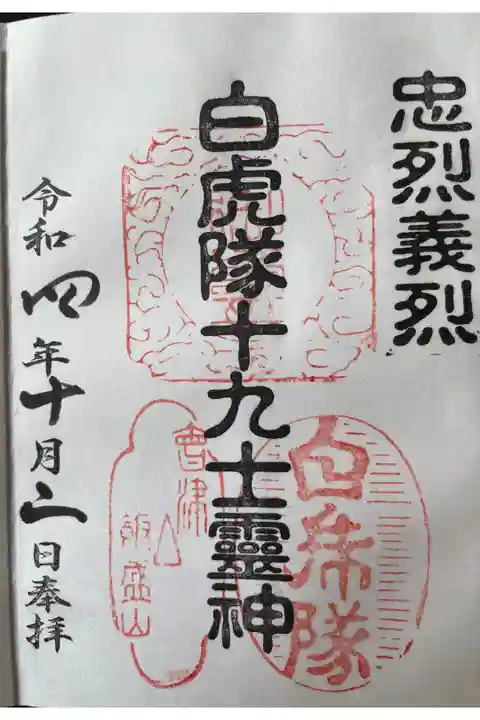 忠烈義烈
白虎隊十九士靈神
令和四年十月二日奉拝
白乕隊
會津
飯盛山